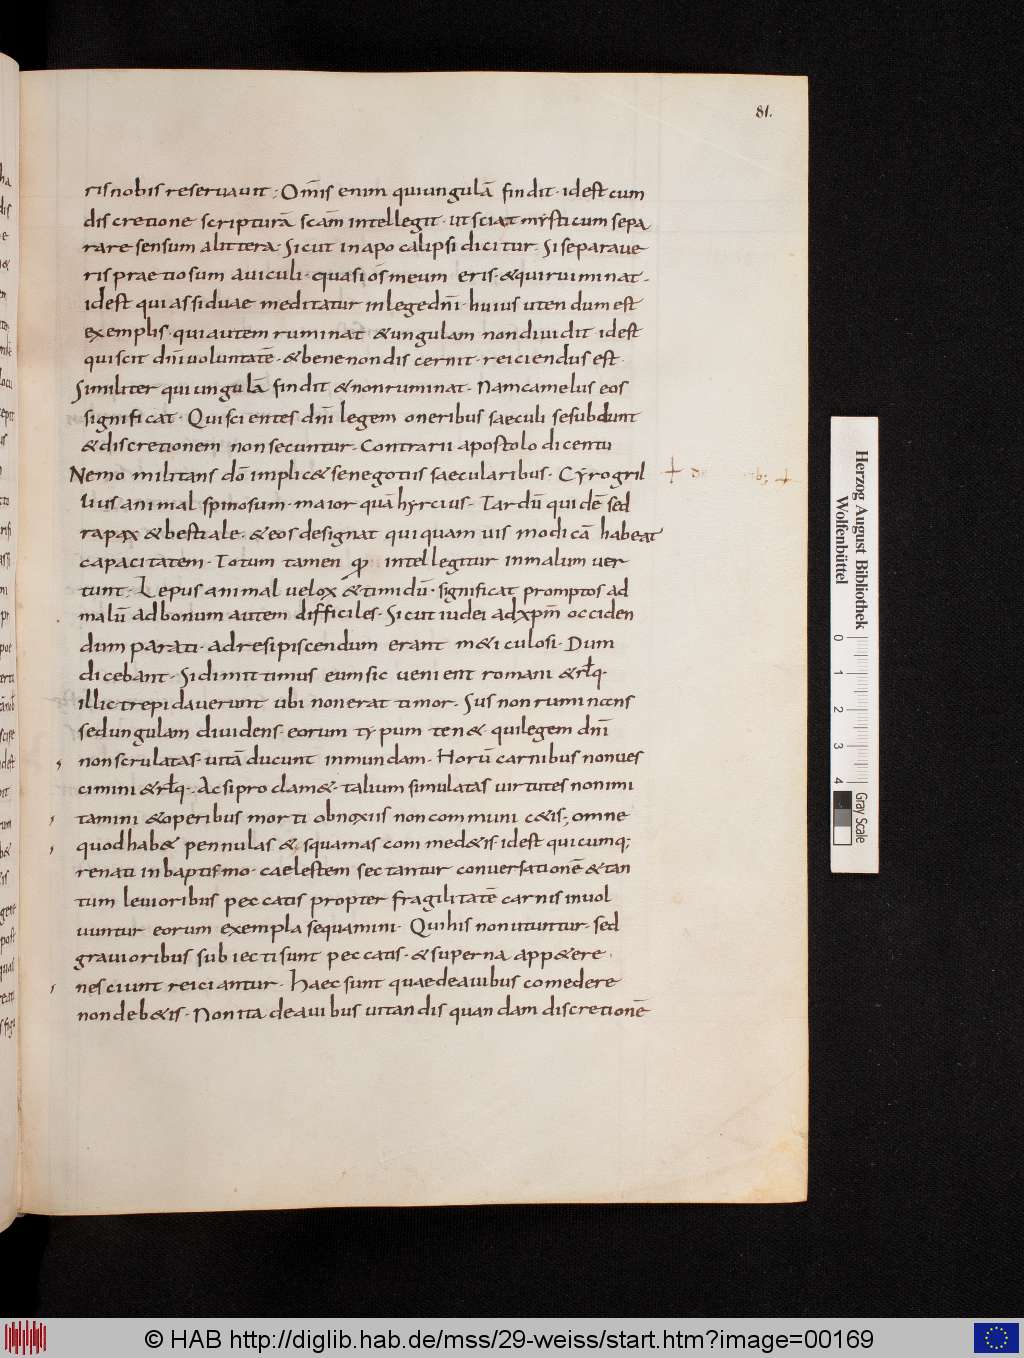 81.
ris nobis reseruauit; Om̄is enim qui ungulā findit· id est cum
discretione scripturā scām intellegit· ut sciat mysticum sepa
rare sensum a littera· Sicut in apocalipsi dicitur· Si separaue
ris praetiosum a uiculi· quasi ós meum eris· & qui ruminat·
id est qui assiduae meditatur in lege dn̄i· huius utendum est
exemplis· qui autem ruminat & ungulam non diuidit id est
qui scit dn̄i uoluntatē· & bene non discernit· reiciendus est·
Similiter qui ungulā findit & non ruminat· Nam camelus eos
significat· Qui scientes dn̄i legem oneribus saeculi se subdunt
& discretionem non secuntur· Contrarii apostolo dicenti
Nemo militans dō implic& se negotiis saecularibus· Cyrogril
lius animal spinosum· maior quā hyrcius· Tardū quidē sed
rapax & bestiale· & eos designat qui quamuis modicā habeat
capacitatem· Totum tamen intellegitur in malum uer
tunt; Lepus animal uelox & timidū· significat promptos ad
malū ad bonum autem difficiles· Sicut iudei ad xp̄m occiden
dum parati· ad resipiscendum erant m&iculosi· Dum
dicebant· Si dimittimus eum sic uenient romani & rl̄q·
illic trepidauerunt ubi non erat timor· Sus non ruminans
sed ungulam diuidens· eorum typum ten&· qui legem dn̄i
non scrulatas· uitā ducunt inmundam· Horū carnibus non ues
cimini & rl̄q· Ac si proclam&· talium simulatas uirtutes non imi
tamini & operibus morti obnoxiis non communic&is; omne
quod hab& pennulas & squamas commed&is· id est quicumq;
renati in baptismo· caelestem sectantur conuersationē & tan
tum leuioribus peccatis propter fragilitatē carnis inuol
uuntur eorum exempla sequamini· Qui his non utuntur· sed
grauioribus subiecti sunt peccatis· & superna app&ere·
nesciunt reiciantur· Haec sunt quae de auibus comedere
non deb&is· Non ita de auibus uitandis quandam discretionē
Herzog August Bibliothek
Wolfenbüttel
0 1 2 3 4
Gray Scale
© HAB http://diglib.hab.de/mss/29-weiss/start.htm?image=00169